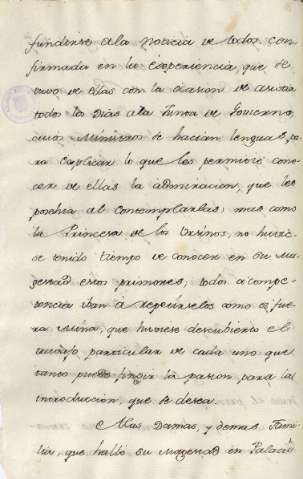 fundirse a la noticia de todos con
firmada en la Experiencia, que se
tuvo de ellas con la ocasion de asistir
todos los Dias a la Junta de Govierno,
cuios Ministros se hacian lenguas pa
ra explicar lo que les permitió cono
cer de ellas la admiracion, que les
ponia al Contemplarlas; mas como
la Princesa de los Ursinos, no huvie
se tenido tiempo de conocer en Su Ma
gestad estos primores; todos a compe
tencia iban a repetirselos como si fue
ra Mina, que huviese descubierto el
trabajo particular de cada uno que
tanto puede fingir la pasion para la
introduccion, que se desea.
A las Damas, y demas Fami
lia, que halló Su Magestad en Palacio